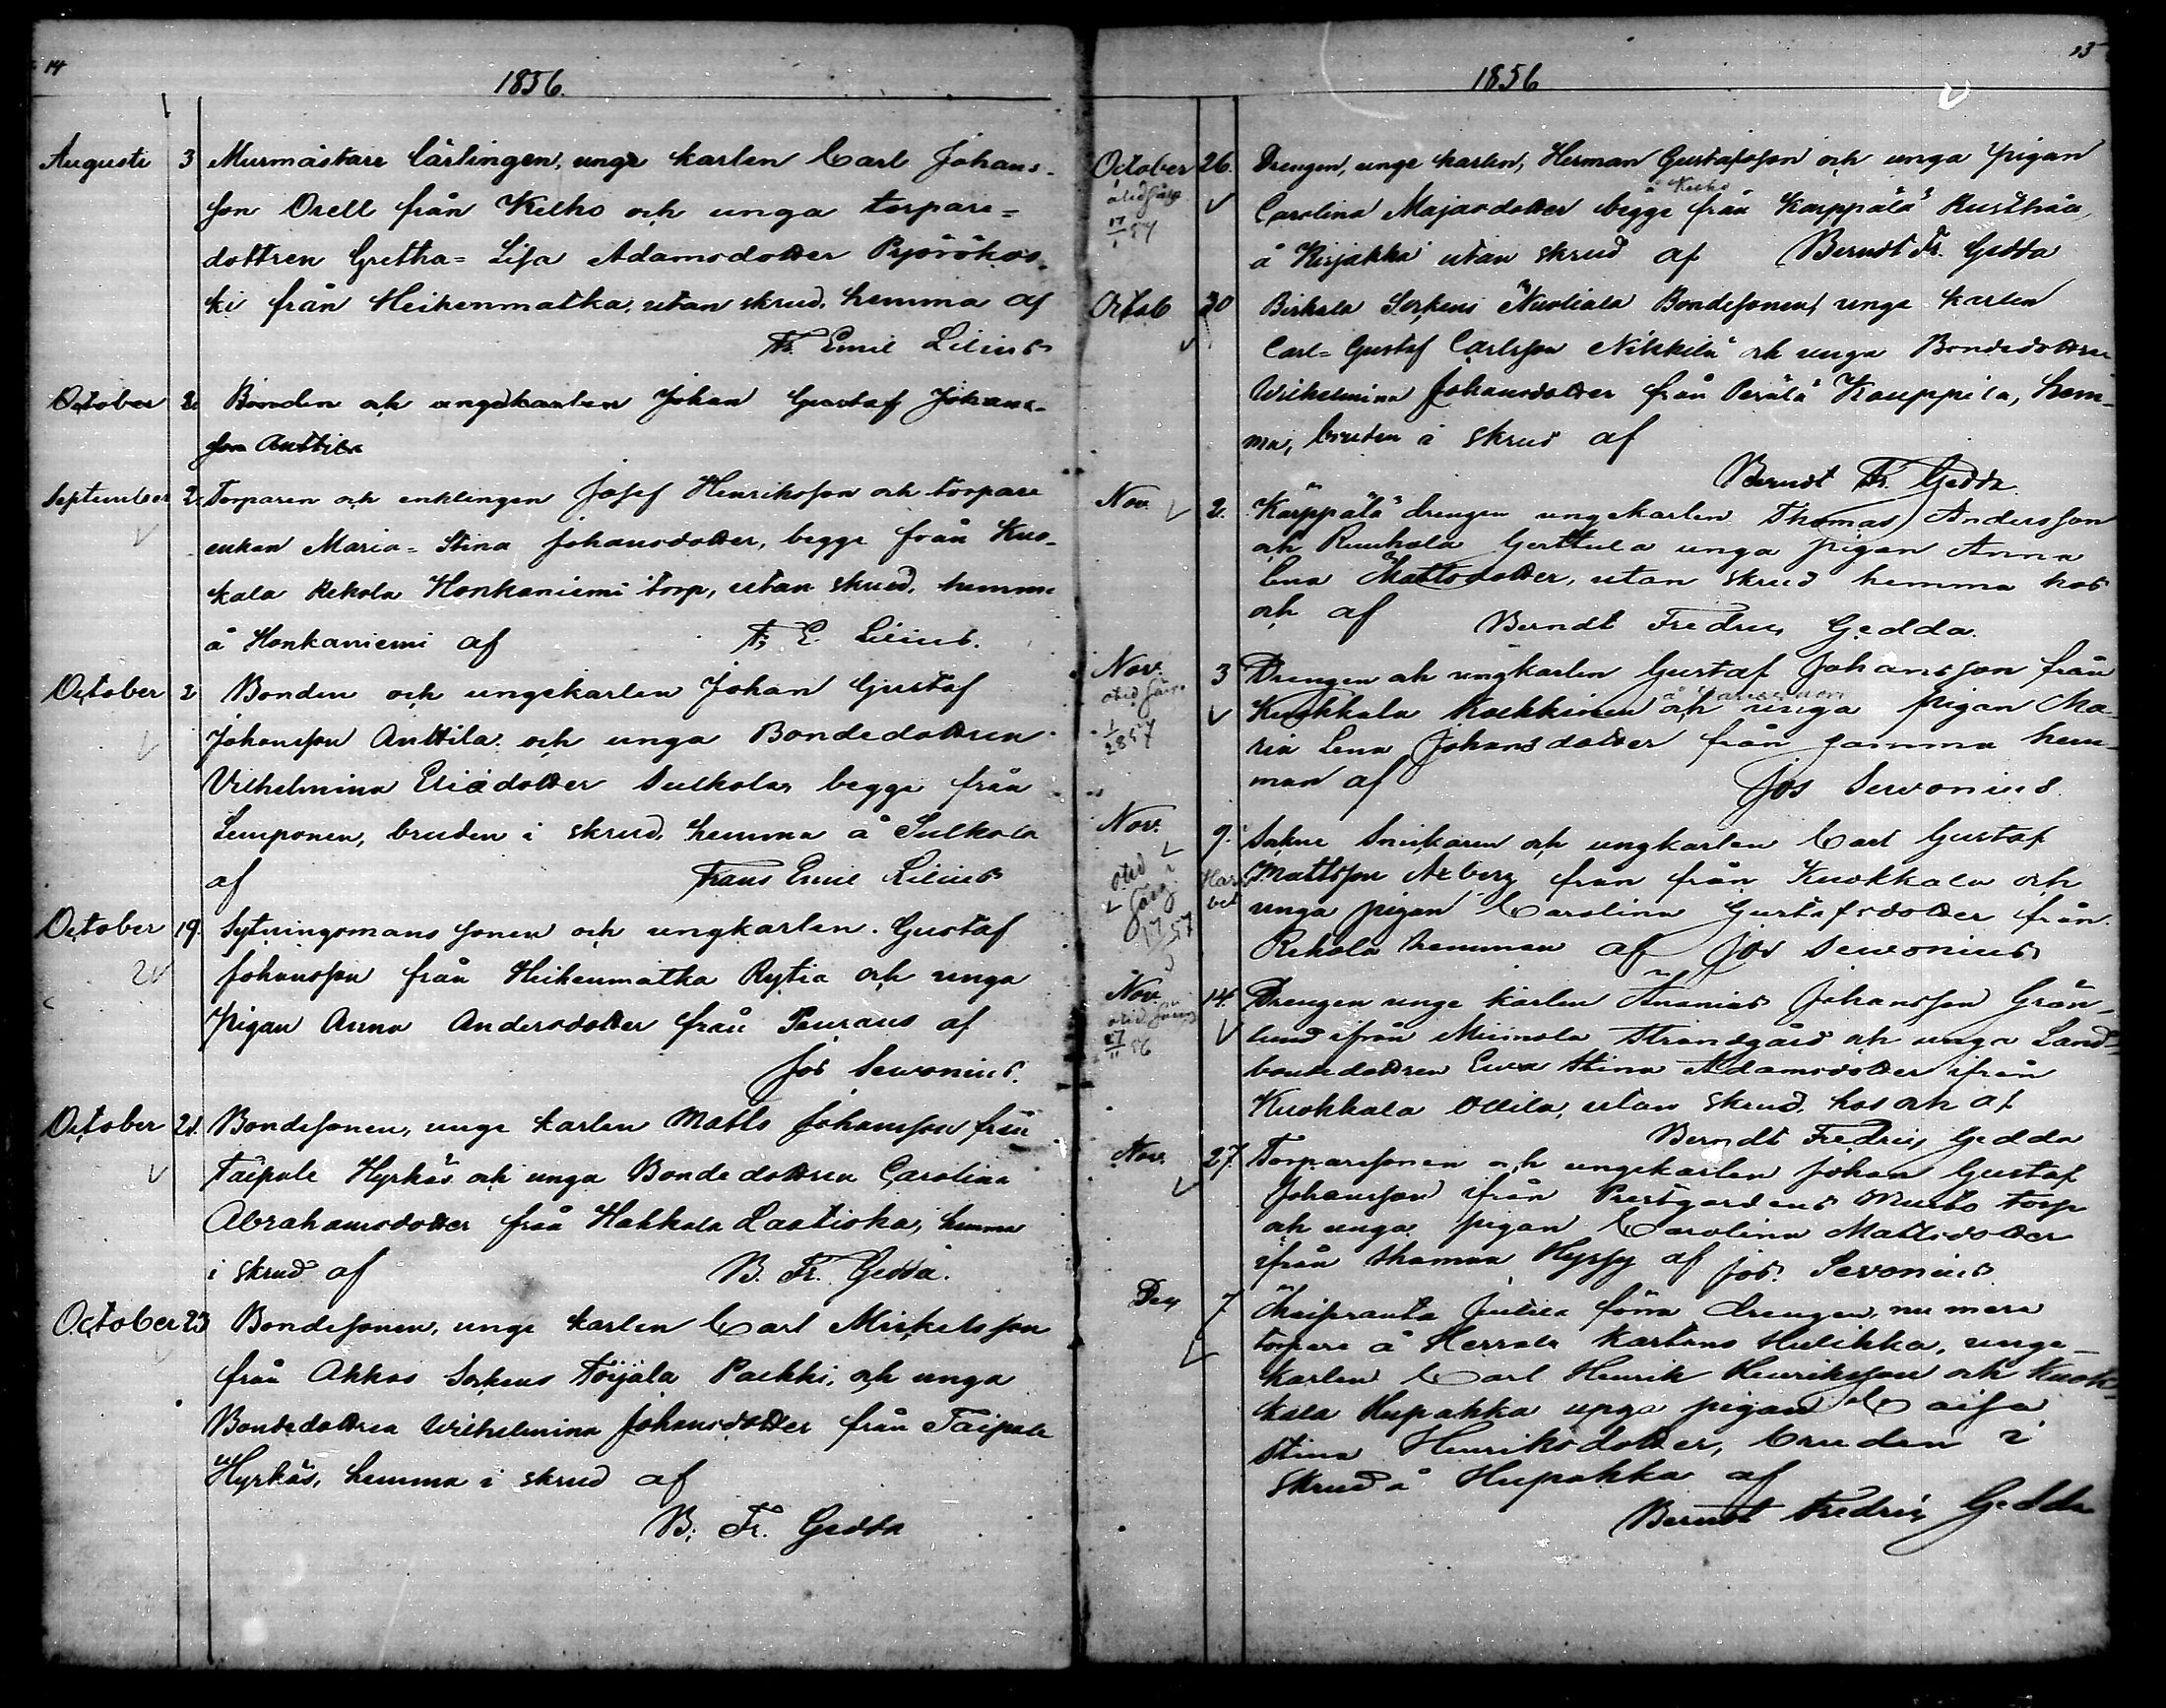 14
1856.
Augusti 3 Murmästare lärlingen, unge karlen Carl Johans-
son Orell från Kelho och unga torpare=
dottren Gretha=Lisa Adamsdotter Pyöröhos-
ki från Heikenmatka, utan skrud, hemma af
Fr. Emil Lilius
October 2. Bonden och ungekarlen Johan Gustaf Johans-
son Anttila
September 2. Torparen och enklingen Josef Henriksson och torpare
enkan Maria=Stina Johansdotter, begge från Kuo-
kala Rekola Honkaniemi torp, utan skrud, hemma
å Honkaniemi af Fr. E. Lilius.
October 2 Bonden och ungekarlen Johan Gustaf
Johansson Anttila och unga Bondedottren
Vilhelmina Eliædotter Sulkola, begge från
Lemponen, bruden i skrud, hemma å Sulkola
af Frans Emil Lilius
October 19. Sytningsmans sonen och ungkarlen Gustaf
Johansson från Heikenmatka Rytia och unga
Pigan Anna Andersdotter från Peuraus af
Jos Sewonius.
October 21. Bondesonen, unge karlen Matts Johansson från
Taipale Hyrkäs och unga Bondedottren Carolina
Abrahamsdotter från Hakkala Laatioka, hemma
i skrud af B. Fr. Gedda.
October 23 Bondesonen, unge karlen Carl Mickelsson
från Akkas Sokens Toijala Paekki, och unga
Bondedottren Wilhelmina Johansdotter från Taipale
Hyrkäs, hemma i skrud af
B. Fr. Gedda
15
1856
October 26. Drengen, unge karlen, Herman Gustafsson och unga pigan
Carolina Majasdotter begge från Karppälä Rusthåll,
å Kirjakka utan skrud af Berndt Fr. Gedda
Octob 30 Birkala Sockens Nuoliala Bondesonen, unge karlen
Carl=Gustaf Carlsson Nikkilä och unga Bondedottren
Wilhelmina Johansdotter från Perälä Kauppila, hem-
ma, bruden i skrud af
Berndt Fr. Gedda.
Nov. 2. Karppälä drengen ungekarlen Thomas Andersson
och Ruuhola Gerttula unga pigan Anna
Lena Mattsdotter, utan skrud hemma hos
och af Berndt Fredric Gedda.
Nov. 3 Drengen och ungkarlen Gustaf Johansson från
Kuokkala och unga pigan Ma-
ria Lena Johansdotter från samma hem-
man af Jos Sewonius.
Nov. 9. Sockne Snickaren och ungkarlen Carl Gustaf
Mattsson Axberg från från Kuokkala och
unga pigan Carolina Gustafsdotter från
Rekola hemman af Jos Sewonius
Nov. 14. Drengen unge karlen Ananias Johansson Grön-
lund ifrån Miemola Strandgård och unga Land-
bondedottren Ewa Stina Adamsdotter ifrån
Kuokkala Ollila, utan skrud, hos och af
Berndt Fredric Gedda
Nov. 27. Torparesonen och ungekarlen Johan Gustaf
Johansson ifrån Prestgårdens Musto torp
och unga pigan Carolina Mattsdotter
ifrån Hyssy af Jos. Sevonius.
Dec 7 drengen, nu mera
torpare å Herrala Kartano Hulikka, unge-
karlen Carl Henrik Henriksson och Kuok-
kala Hupakka unga pigan Caisa
Stina Henriksdotter, bruden i
skrud å Hupakka af
Berndt Fredric Gedda